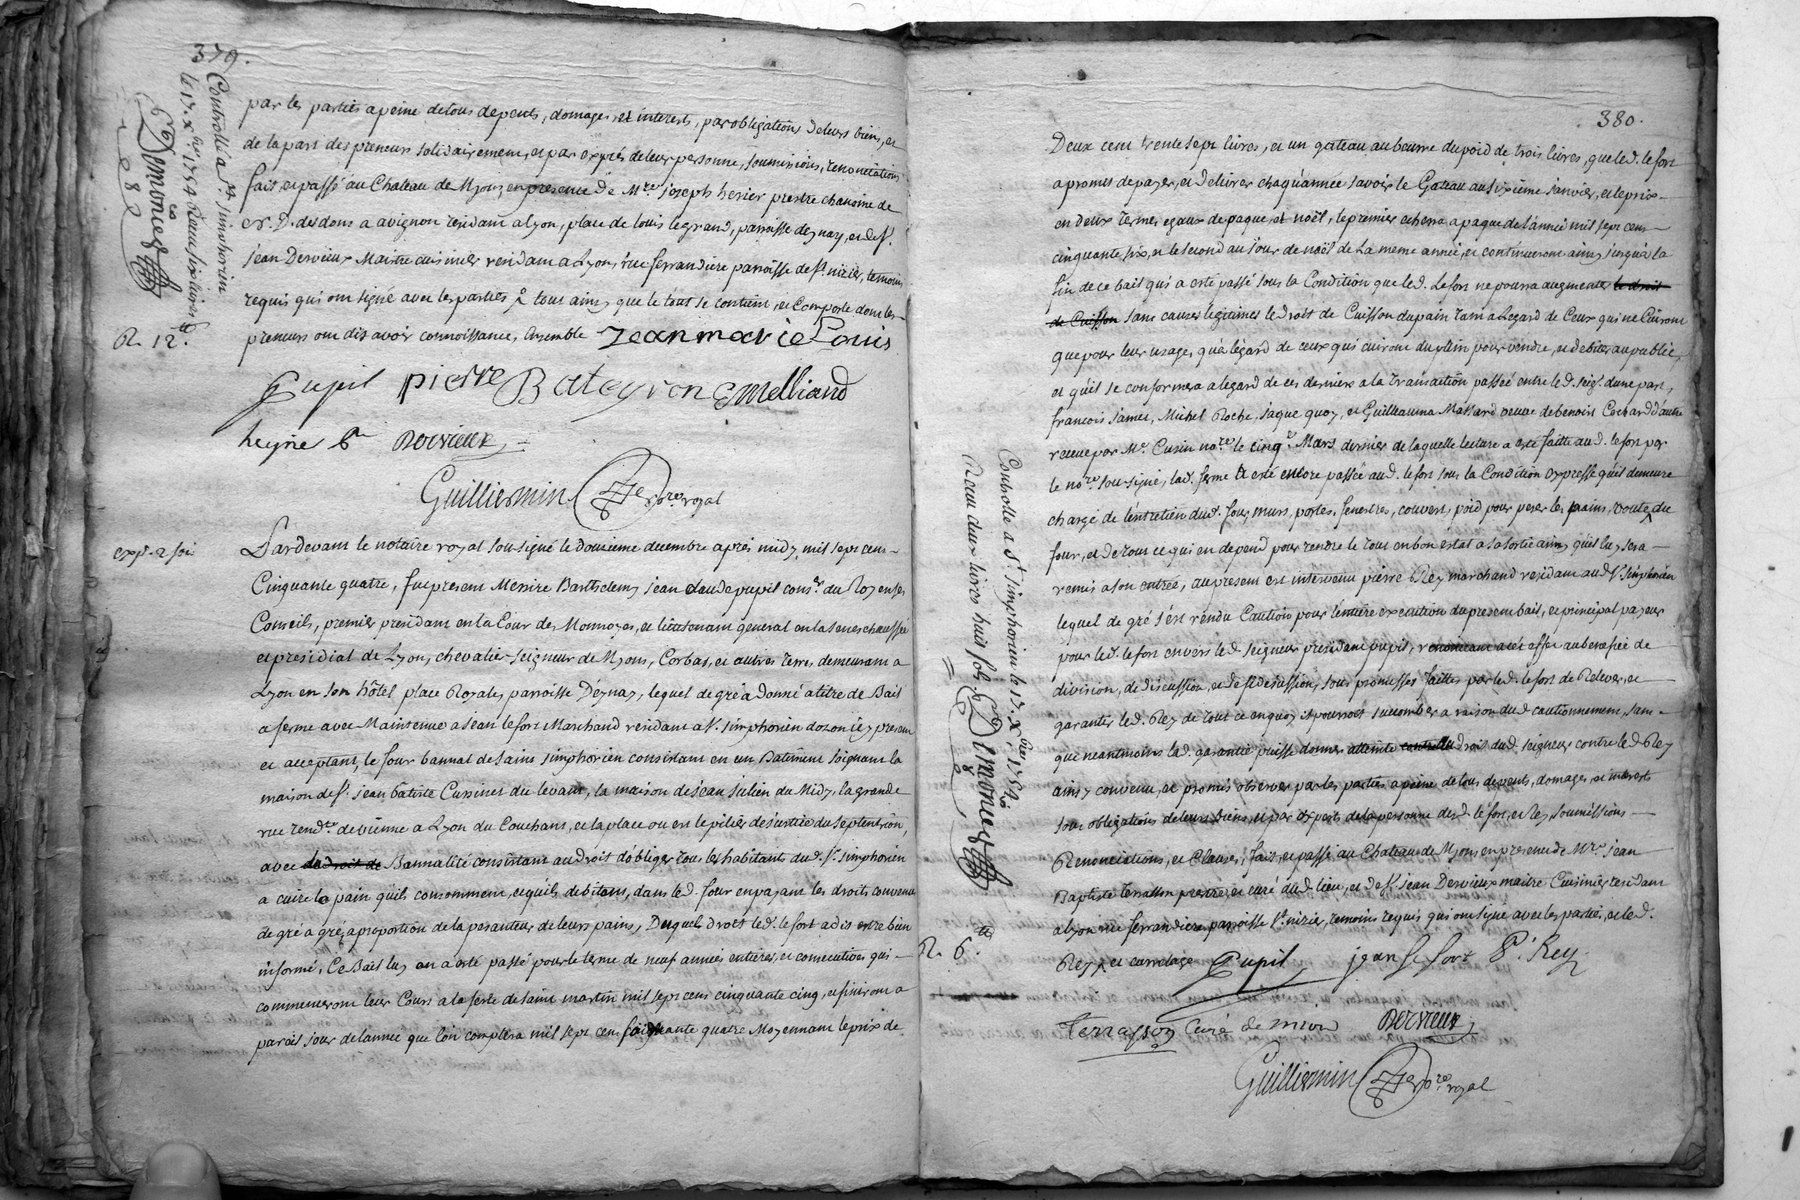 379.
Controllé a St. simphorien
le 17. xbre 1754 Receu six livres
Demonés
R. 12.
par les parties a peine de tous depents, domages et interests, par obligation de leurs biens, et
de la part des preneurs solidairement, et par exprés de leur personne, soumissions, renonciations
fait et passé au Chateau de Myons en presence de Mre. joseph hesier prestre chanoine de
N. D. des dons a avignon residant a lyon, place de louis le grand, parroisse d'eynay, et de sr.
jean Dervieux Maitre cuisinier residant a Lyon, rue ferrandiere parroisse de st. nizier, temoins
requis qui ont signé avec les parties tous ainsy que le tout se contient, et comporte dont les
preneurs ont dit avoir connoissance, Ensemble Jean marie Louis
Pupil pierre Bateyron Melliand
Dervieux
Guilliermin nore. royal
exp. 2 fois
Pardevant le notaire royal soussigné le douzieme decembre aprés midy mil sept cens
Cinquante quatre, fut present Messire Barthelemy jean claude pupil coner. du Roy en ses
Conseils, premier president en la Cour des Monnoyes, et lieutenant general en la senechaussée
et presidial de Lyon, chevalier seigneur de Myons, Corbas, et autres terres, demeurant a
Lyon en son hôtel place Royale, parroisse D'eynay, lequel de gré a donné a titre de Bail
a ferme avec Maintenue a jean le fort Marchand residant a st. simphorien dozon icy present
et acceptant, le four bannal de saint simphorien consistant en un Batiment joignant la
maison de sr. jean batiste Cuisinet du levant, la maison de jean julien du Midy, la grande
rue tendte. de vienne a Lyon du Couchant, et la place ou est le pilier de justice du septentrion,
avec la droit de Bannalité consistant au droit d'obliger tous les habitant dud. st. simphorien
a cuire le pain qu'ils consomment, et qu'ils debitent, dans led. four en payant les droits convenus
de gré a gré, a proportion de la pesanteur de leurs pains, Duquel droit led. le fort a dis entre bien
informé, Ce Bail luy en a esté passé pour le terme de neuf années entieres, et consecutives qui
commenceront leur Cours a la feste de saint martin mil sept cens cinquante cinq, et finiront a
pareil jour de l'année que l'on comptera mil sept cens soixante quatre Moyennant le prix de
380.
Deux cent trente sept livres, et un gateau au beurre du poid de trois livres, que led. le fort
a promis de payer, et delivrer chaqu'année savoir le Gateau au sixieme janvier, et le prix
en deux termes egaux de paque, et noël, le premier echerra a paque de l'année mil sept cens
cinquante six, et le second au jour de noël de La meme année, et continueront ainsy jusqu'a la
fin de ce bail qui a esté passé sous la Condition que led. Le fort ne pourra augmenter le droit
de Cuisson sans causes légitimes le droit de Cuisson du pain tant a L'egard de Ceux qui ne Cuiront
que pour leur usage, qu'a l'égard de ceux qui cuiront du pain pour vendre, et debiter au public,
et qu'il se conformera a l'egard de ces derniers a la transaction passée entre led. seigr. d'une part,
francois james, Michel Roche, jaque quoy, et Guilleauma Massard veuve de benoist Cochard d'autre
receue par Me. Cusin nore. le cinqe. Mars dernier de laquelle lecture a esté faitte aud. le fort par
le nore. soussigné, lad. ferme a esté encore passée aud. le fort sous la Condition expresse qu'il demeure
chargé de l'entretien dud. four, murs, portes, fenestres, couvert, poid pour peser les pains, voute du
four, et de tout ce qui en depend pour rendre le tout en bon éstat a sa sortie ainsy qu'il luy sera
remis a son entrée, au present est intervenu pierre Rey marchand residant aud. st. simphorien
lequel de gré s'est rendu Caution pour l'entiere execution du present bail, et principal payeur
pour led. le fort envers led. seigneur president pupil, renonceant a cet effet au benefice de
division, de discussion, et de fidejussion, sous promesses faittes par led. le fort de Relever, et
garantir led. Rey de tout ce en quoy il pourroit succomber a raison dud. cautionnement, sans
que neantmoins lad. garantie puisse donner atteinte contre au droits dud. seigneur contre led. Rey
ainsy convenu, et promis observer par les parties a peine de tous depents, domages, et interests
sous obligations de leurs biens, et par exprés de la personne desd. le fort, et Rey, soumissions
Renonciations, et Clauses, fait, et passé au Chateau de Myons en presence de Mre. jean
Baptiste terrasson prestre et curé dud. lieu, et de sr. jean Dervieux maitre Cuisinier residant
a lyon rue ferrandiere parroisse st. nizier, temoins requis qui ont signé avec les parties, et led.
Rey, et carrelage Pupil jean le fort P. Rey
Terrasson Curé de mion Dervieux
Guilliermin nore. royal
Controllé a St. simphorien le 17. xbre 1754
Receu deux livres huit sols Demonés
R. 6.